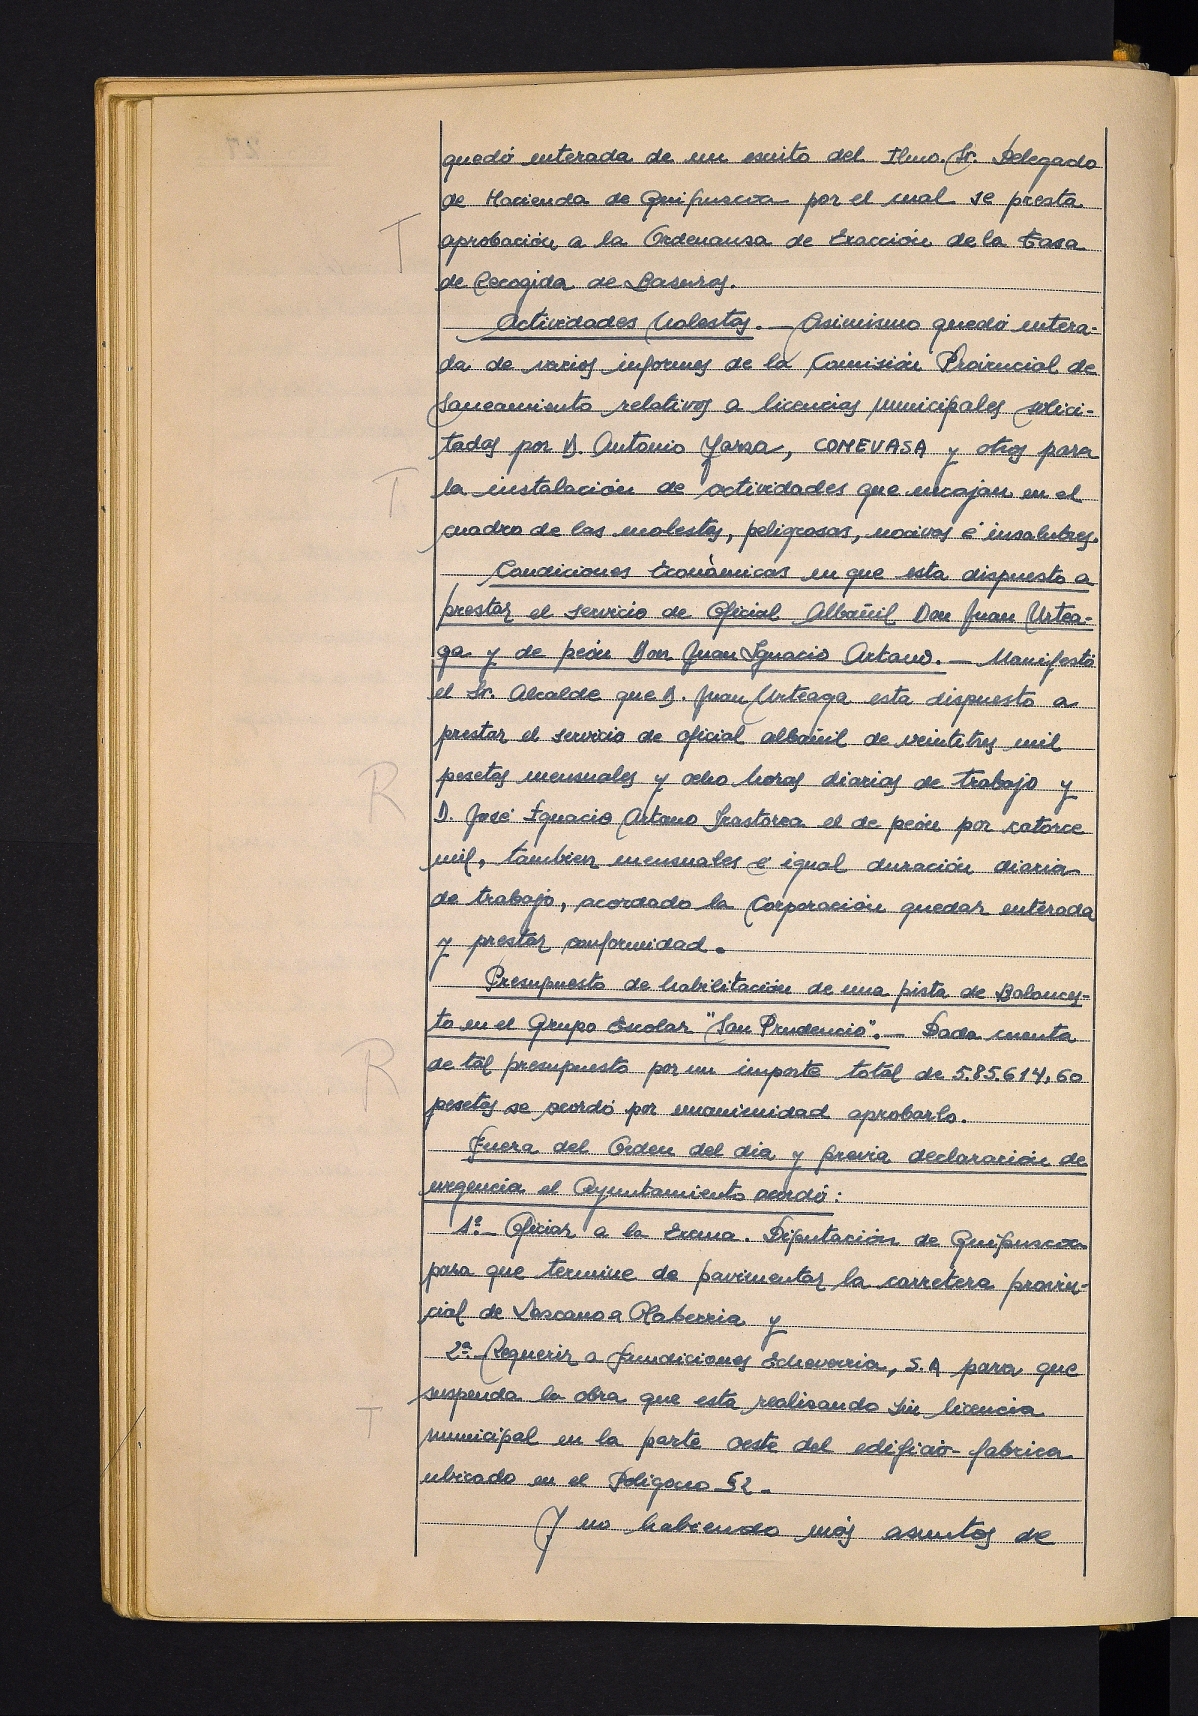 quedó enterada de un escrito del Ilmo. Sr. Delegado
de Hacienda de Guipuscoa por el cual se presta
T
aprobación a la Ordenansa de Exacción de la Tasa
de Recogida de Basuras.
Actividades Molestas. — Asimismo quedó entera-
da de varios informes de la Comisión Provincial de
Saneamiento relativos a licencias municipales solici-
tadas por D. Antonio Yarza, COMEVASA y otros para
T
la instalación de actividades que encajan en el
cuadro de las molestas, peligrosas, nocivas é insalubres.
Condiciones Económicas en que esta dispuesto a
prestar el servicio de Oficial Albañil Don Juan Urtea-
ga y de peón Don Juan Ignacio Artano. — Manifestó
el Sr. Alcalde que D. Juan Urteaga esta dispuesto a
prestar el servicio de oficial albañil de veintitres mil
pesetas mensuales y ocho horas diarias de trabajo y
R
D. José Ignacio Artano Irastorza el de peón por catorce
mil, tambien mensuales e igual duración diaria
de trabajo, acordado la Corporación quedar enterada
y prestar conformidad.
Presupuesto de habilitación de una pista de Balonces-
to en el Grupo Escolar "San Prudencio". — Dada cuenta
de tal presupuesto por un importe total de 585.614,60
R
pesetas se acordó por unanimidad aprobarlo.
Fuera del Orden del dia y previa declaración de
urgencia el Ayuntamiento acordó:
1º.- Oficiar a la Excma. Diputación de Guipuscoa
para que termine de pavimentar la carretera provin-
cial de Lascano a Olaberria y
2º.- Requerir a Fundiciones Echeverria, S.A para que
suspenda la obra que esta realisando sin licencia
T
municipal en la parte oeste del edificio-fabrica
ubicado en el Poligono 52.
Y no habiendo más asuntos de